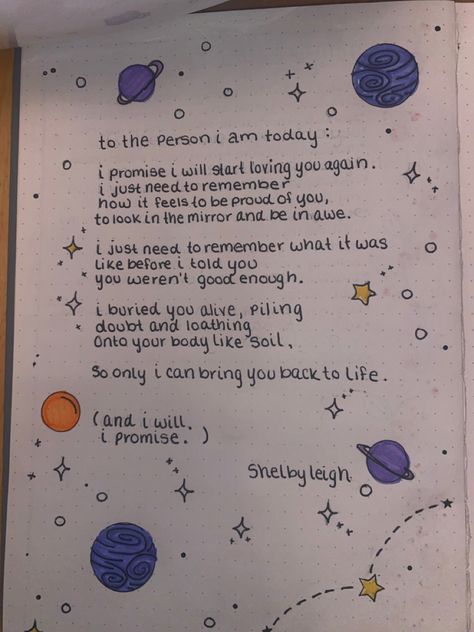 to the person i am today :
i promise i will start loving you again.
i just need to remember
how it feels to be proud of you,
to look in the mirror and be in awe.
i just need to remember what it was
like before i told you
you weren't good enough.
i buried you alive, piling
doubt and loathing
onto your body like soil,
So only i can bring you back to life.
(and i will.
i promise. )
Shelby leigh